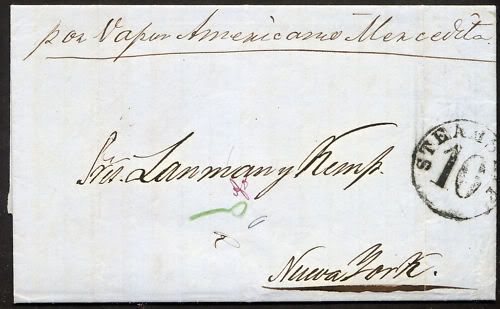 por Vapor Americano Mercedita.
STEAMS
10
Sres. Lanman y Kemp.
Nueva York.